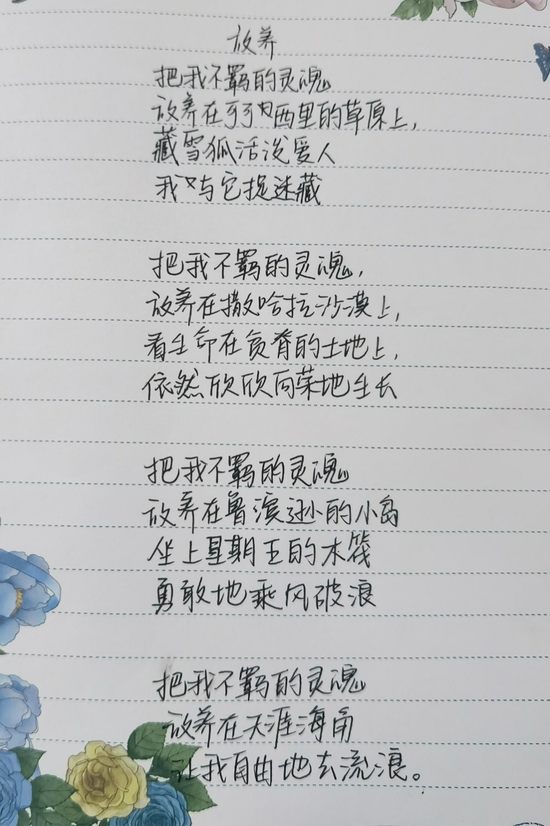 放养
把我不羁的灵魂
放养在可可西里的草原上,
藏雪狐活泼爱人
我与它捉迷藏
把我不羁的灵魂,
放养在撒哈拉沙漠上,
看生命在贫脊的土地上,
依然欣欣向荣地生长
把我不羁的灵魂
放养在鲁滨逊的小岛
坐上星期五的木筏
勇敢地乘风破浪
把我不羁的灵魂
放养在天涯海角
让我自由地去流浪。